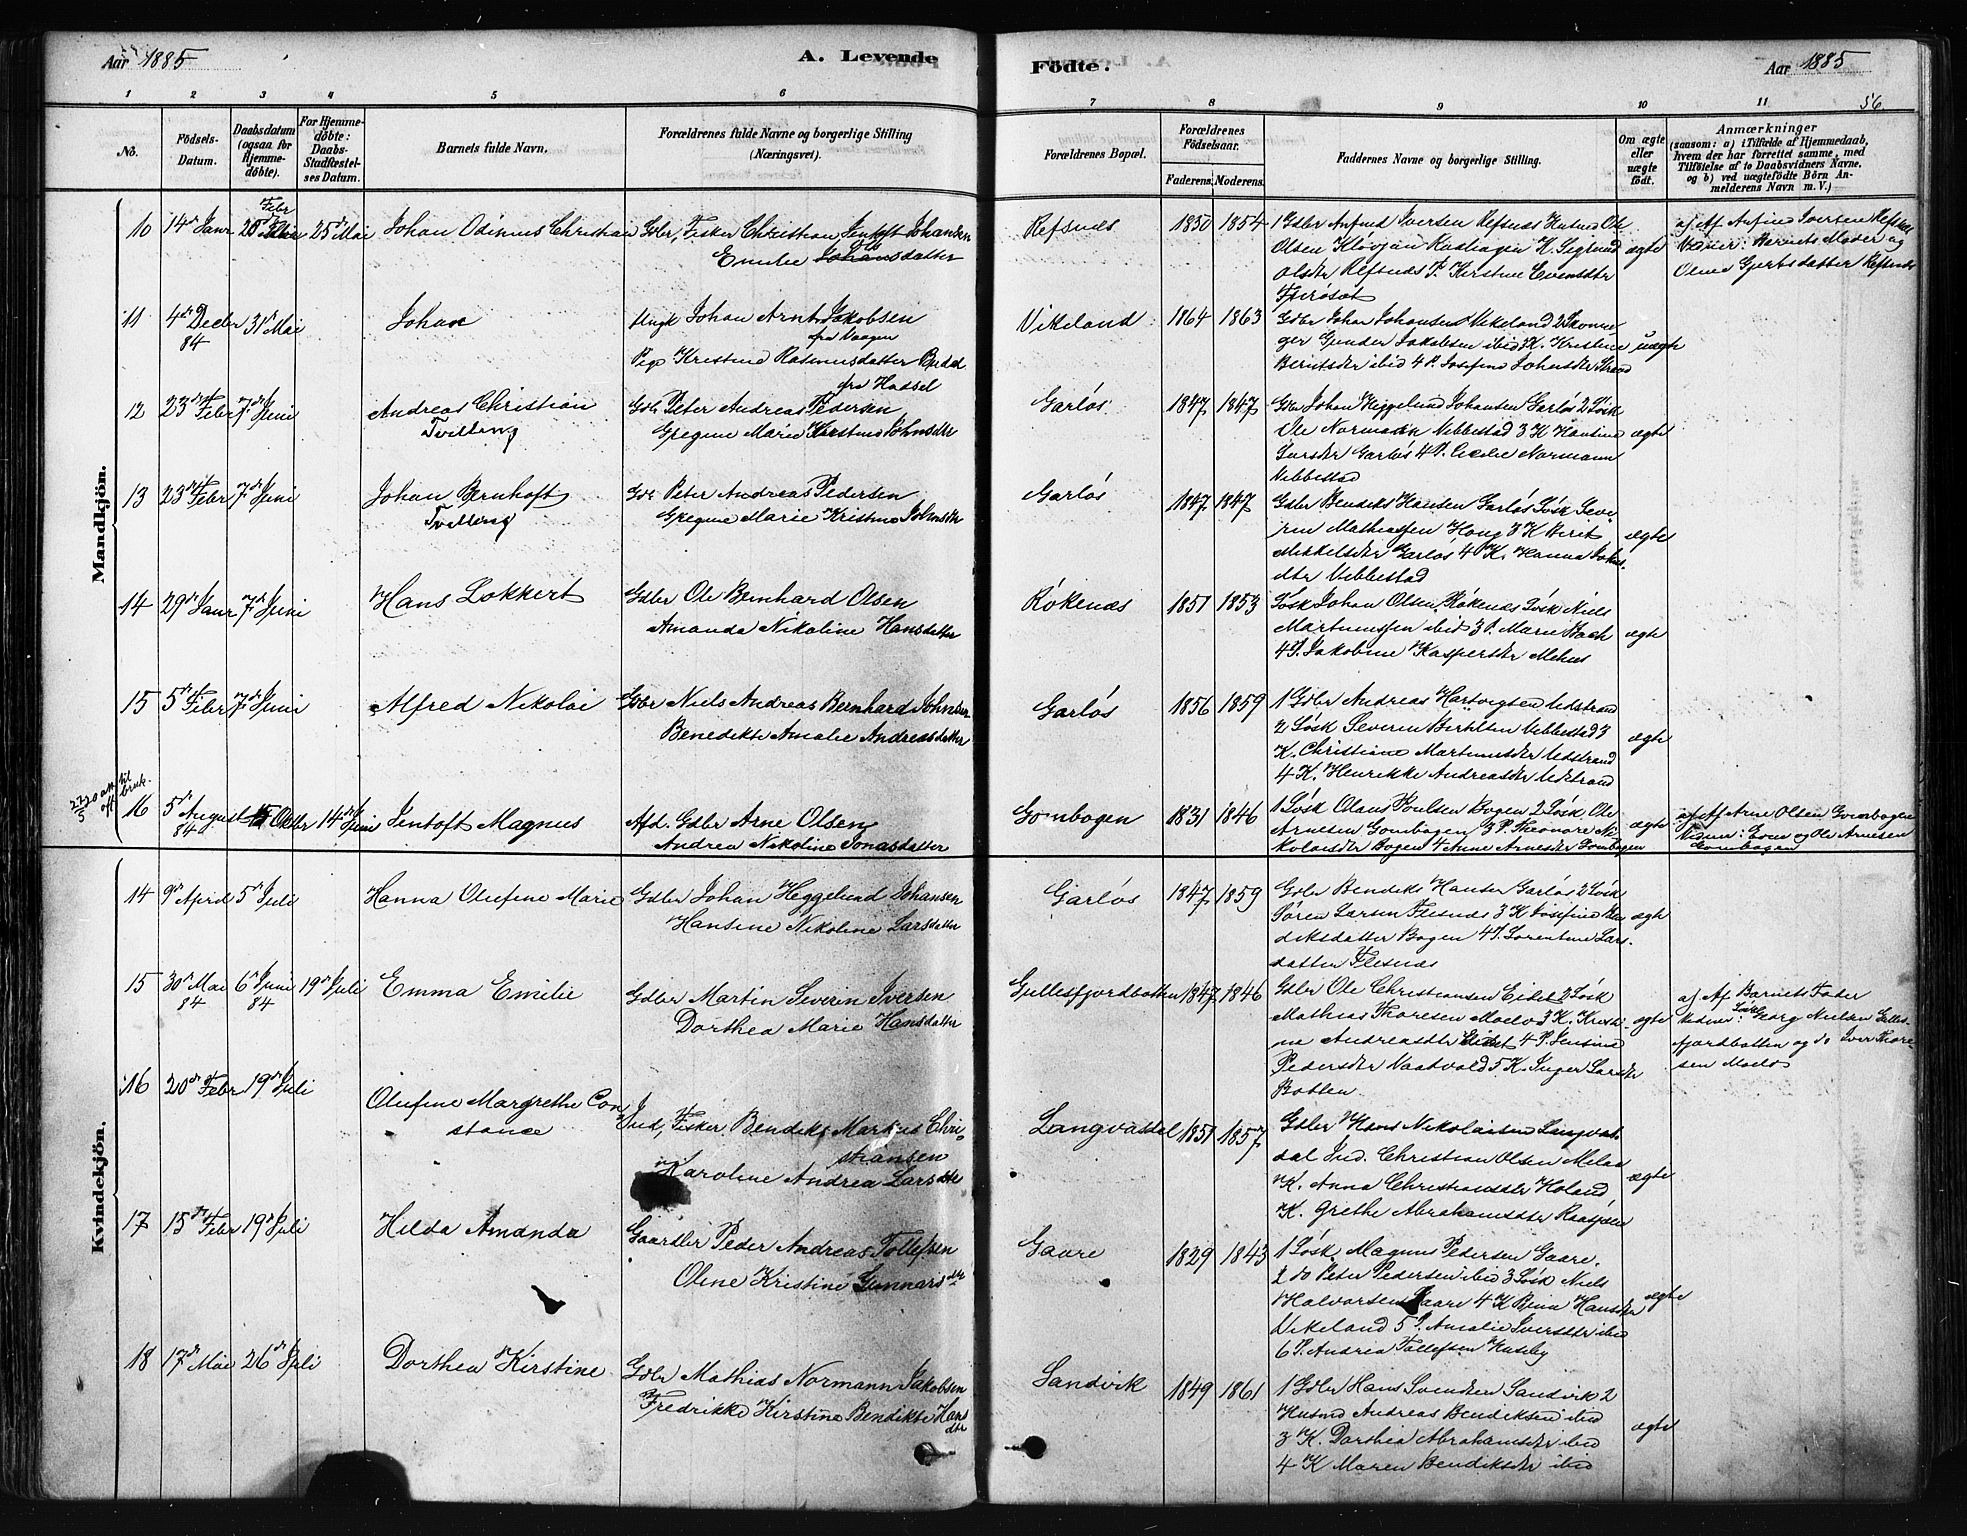 Aar 1885
A. Levende
Födte.
Aar 1885
1 2 3 4 5 6 7 8 9 10 11 56
No.
Födsels-
Datum.
Daabsdatum
(ogsaa for
Hjemme-
döbte).
For Hjemme-
döbte:
Daabs-
Stadfæstel-
ses Datum.
Barnets fulde Navn.
Forældrenes fulde Navne og borgerlige Stilling
(Næringsvei).
Forældrenes Bopæl.
Forældrenes
Födselsaar.
Faderens. Moderens.
Faddernes Navne og borgerlige Stilling.
Om ægte
eller
uægte
födt.
Anmærkninger
(saasom: a) i Tilfælde af Hjemmedaab,
hvem der har forrettet samme, med
Tilföielse af to Daabsvidners Navne,
og b) ved uægtefödte Börn An-
melderens Navn m. V.)
Mandkjön.
10 14de Janr 25 Febr 25de Mai Johan Odinius Christian Gdbr, Fisker Christian Jentoft Johansen
Emilie Johansdatter
Refsnæs 1850 1854 ægte
1 Gdbr Arfind Iversen Refsnæs Husmd Ole
Olsen Kløvjan Kashagen K. Sigrund
Olsdtr Refsnæs P. Kirstine Evensdtr
af Af Arfind Iversen Refsnæs
Vidner: Barnets Moder og
Oline Gjertsdatter Refsnæs
11 4de Decbr 84 31te Mai Johan
Ungk Johan Arnt Jakobsen
fra Vaagen
Pige Kristine Rasmusdatter
fra Hassel
Vikeland 1864 1863 uægte
Gdbr Johan Johansen Vikeland 2 Skoma-
ger Gunder Jakobsen ibid 3 K. Kristine
Berntsdtr ibid 4 P. Josefine Johansdtr Strand
12 23de Febr 7de Juni Andreas Christian
Tvilling
Gdb. Peter Andreas Pedersen
Gregine Marie Kirstine Johnsdtr
Garløs 1847 1847 ægte
Gdbr Johan Heggelund Johansen Garløs 2 Løsk
Ole Normann Vebbestad 3 K Hansine
Larsdtr Garløs 4 P. Cecilie Normann
Vebbestad
13 23de Febr 7de Juni Johan Bernhoft
Tvilling
Gdb. Peter Andreas Pedersen
Gregine Marie Kristine Johnsdtr
Garløs 1847 1847 ægte
Gdbr Bendiks Hansen Garløs Løsk Seve-
rin Mathiassen Haug 3 K Berit
Mikkelsdtr Garløs 4 K. Hanna Johns-
dtr Vebbestad
14 29de Janr 7de Juni Hans Lokkert
Gdbr Ole Bernhard Olsen
Amanda Nikoline Hansdatter
Røkenæs 1851 1853 ægte
Løsk Johan Olsen Røkenæs Løsk Niels
Martinussen ibid 3 P. Marie Bach
4 P. Jakobine Kaspersdtr Melnes
15 5te Febr 7de Juni Alfred Nikolai
Gdbr Niels Andreas Bernhard Johnsen
Benedikte Amalie Andreasdatter
Garløs 1856 1859 ægte
1 Gdbr Andreas Hartvigsen Udstrand
2 Løsk Severin Bertelsen Vebbestad 3
K. Christiane Martinusdtr Udstrand
4 K. Henrikke Andreasdtr Udstrand
til
bruk.
16 5te August 84 15 Oktbr 14de Juni Jentoft Magnus
Afd. Gdbr Arne Olsen
Andrea Nikoline Jonasdatter
Gombogen 1831 1846 ægte
1 Løsk Olaus Poulsen Bogen 2 Løsk Ole
Arnesen Gombogen 3 P. Theonore Ni-
kolaisdtr Bogen 4 Anne Arnesdtr Gombogen
af Af Arne Olsen Gombogen
Vidner: Even og Ole Arnesen
Gombogen
Kvindekjön.
14 9de April 5te Juli Hanna Olufine Marie
Gdbr Johan Heggelund Johansen
Hansine Nikoline Larsdatter
Garløs 1847 1859 ægte
Gdbr Bendiks Hansen Garløs 2 Løsk
Søren Larsen Flesnæs 3 K Josefine Ben-
diksdatter Bogen 4 P. Lorentine Lars-
datter Flesnæs
15 30te Mai 84 6te Juni 84 19de Juli Emma Emilie
Gdbr Martin Severin Iversen
Dorthea Marie Hansdatter
Gullesfjordbotten 1847 1846 ægte
Gdbr Ole Christiansen Eidet 2 Løsk
Mathias Thoresen Moelv 3 K. Kristi-
ne Andreasdtr Eidet 4 P. Jensine
Pedersdtr Vaatvold 5 K. Inger Larsdtr
Botten
af Af Barnets Fader
Vidner: Løsk Georg Nielsen Gulles-
fjordbotten og do Iver Thore-
sen Moelv
16 20de Febr 19de Juli Olufine Margrethe Con-
stance
Ind, Fisker Bendiks Markus Chri-
stiansen
Karoline Andrea Larsdtr
Langvasdal 1851 1857 ægte
Gdbr Hans Nikolaisen Langvas-
dal Ind. Christian Olsen Melaa
K. Anna Christiansdtr Holand
K. Grethe Abrahamsdtr
17 15de Febr 19de Juli Hilda Amanda
Gaardbr Peder Andreas Tollefsen
Oline Kristine Gunnarsdtr
Gaare 1829 1843 ægte
1 Løsk Magnus Pedersen Gaare.
2 do Peter Pedersen ibid 3 Løsk Niels
Halvorsen Gaare 4 K Hansdtr
Vikeland 5 P. Amalie Iversdtr ibid
6 P. Andrea Tollefsen Huseby
18 17de Mai 26de Juli Dorthea Kirstine
Gdbr Mathias Normann Jakobsen
Fredrikke Kirstine Bendikte Hans
dtr
Sandvik 1849 1861 ægte
1 Gdbr Hans Svendsen Sandvik 2
Husmd Andreas Bendiksen ibid
3 K. Dorthea Abrahamsdtr ibid
4 K Maren Bendiksdtr ibid